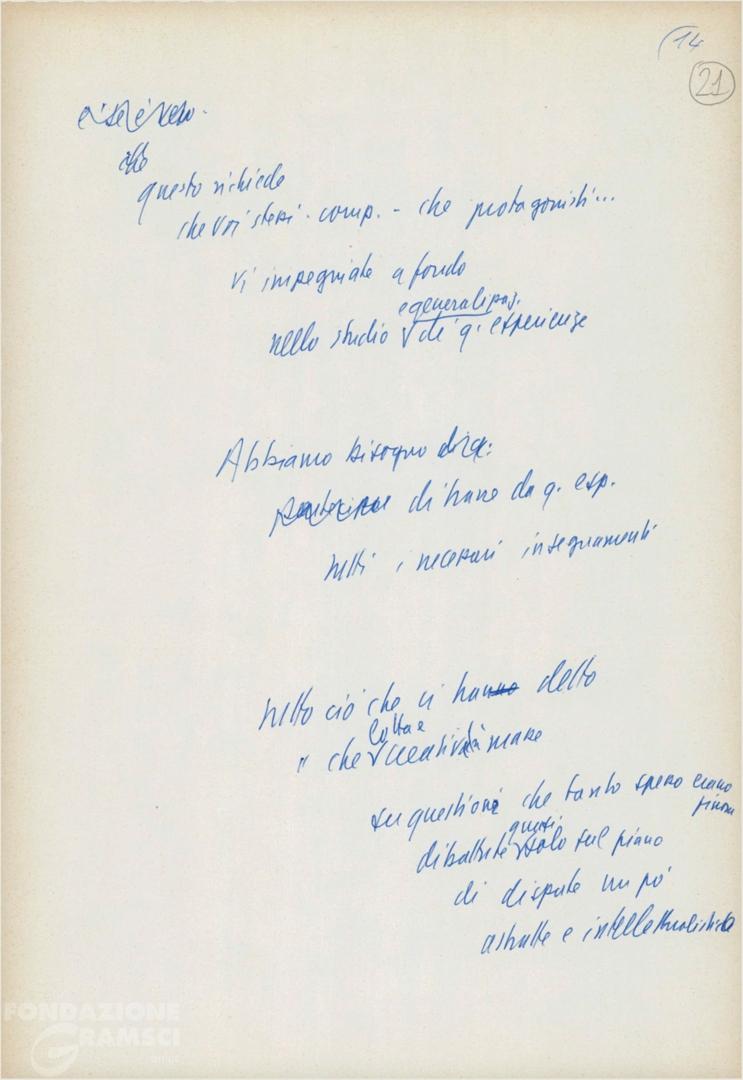 14
21
e se è vero
che
questo richiede
che voi stessi - comp. - che protagonisti...
vi impegniate a fondo
e generalizzaz.
nello studio V di q. esperienze
Abbiamo bisogno di
di trarre da q. esp.
tutti i necessari insegnamenti
tutto ciò che ci hanno detto
lotta e
" che V creatività mane
su questioni che tanto spesso erano
finora
quasi
dibattute V solo sul piano
di dispute un pò
astratte e intellettualistiche
FONDAZIONE
GRAMSCI